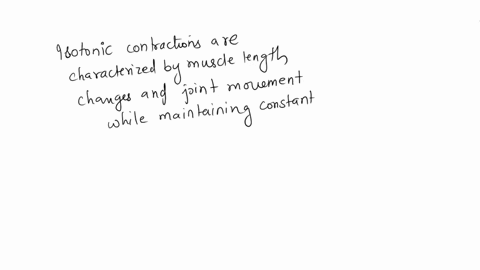 Isotonic contractions are
characterized by muscle length
changes and joint movement
while maintaining constant